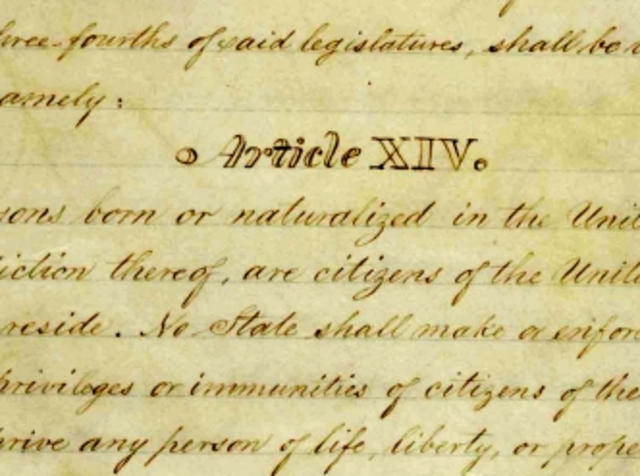 hree-fourths of said legislatures, shall be
amely:
Article XIV.
sons born or naturalized in the Unit
iction thereof, are citizens of the Unite
reside. No State shall make or enfor
privileges or immunities of citizens of the
prive any person of life, liberty, or prope